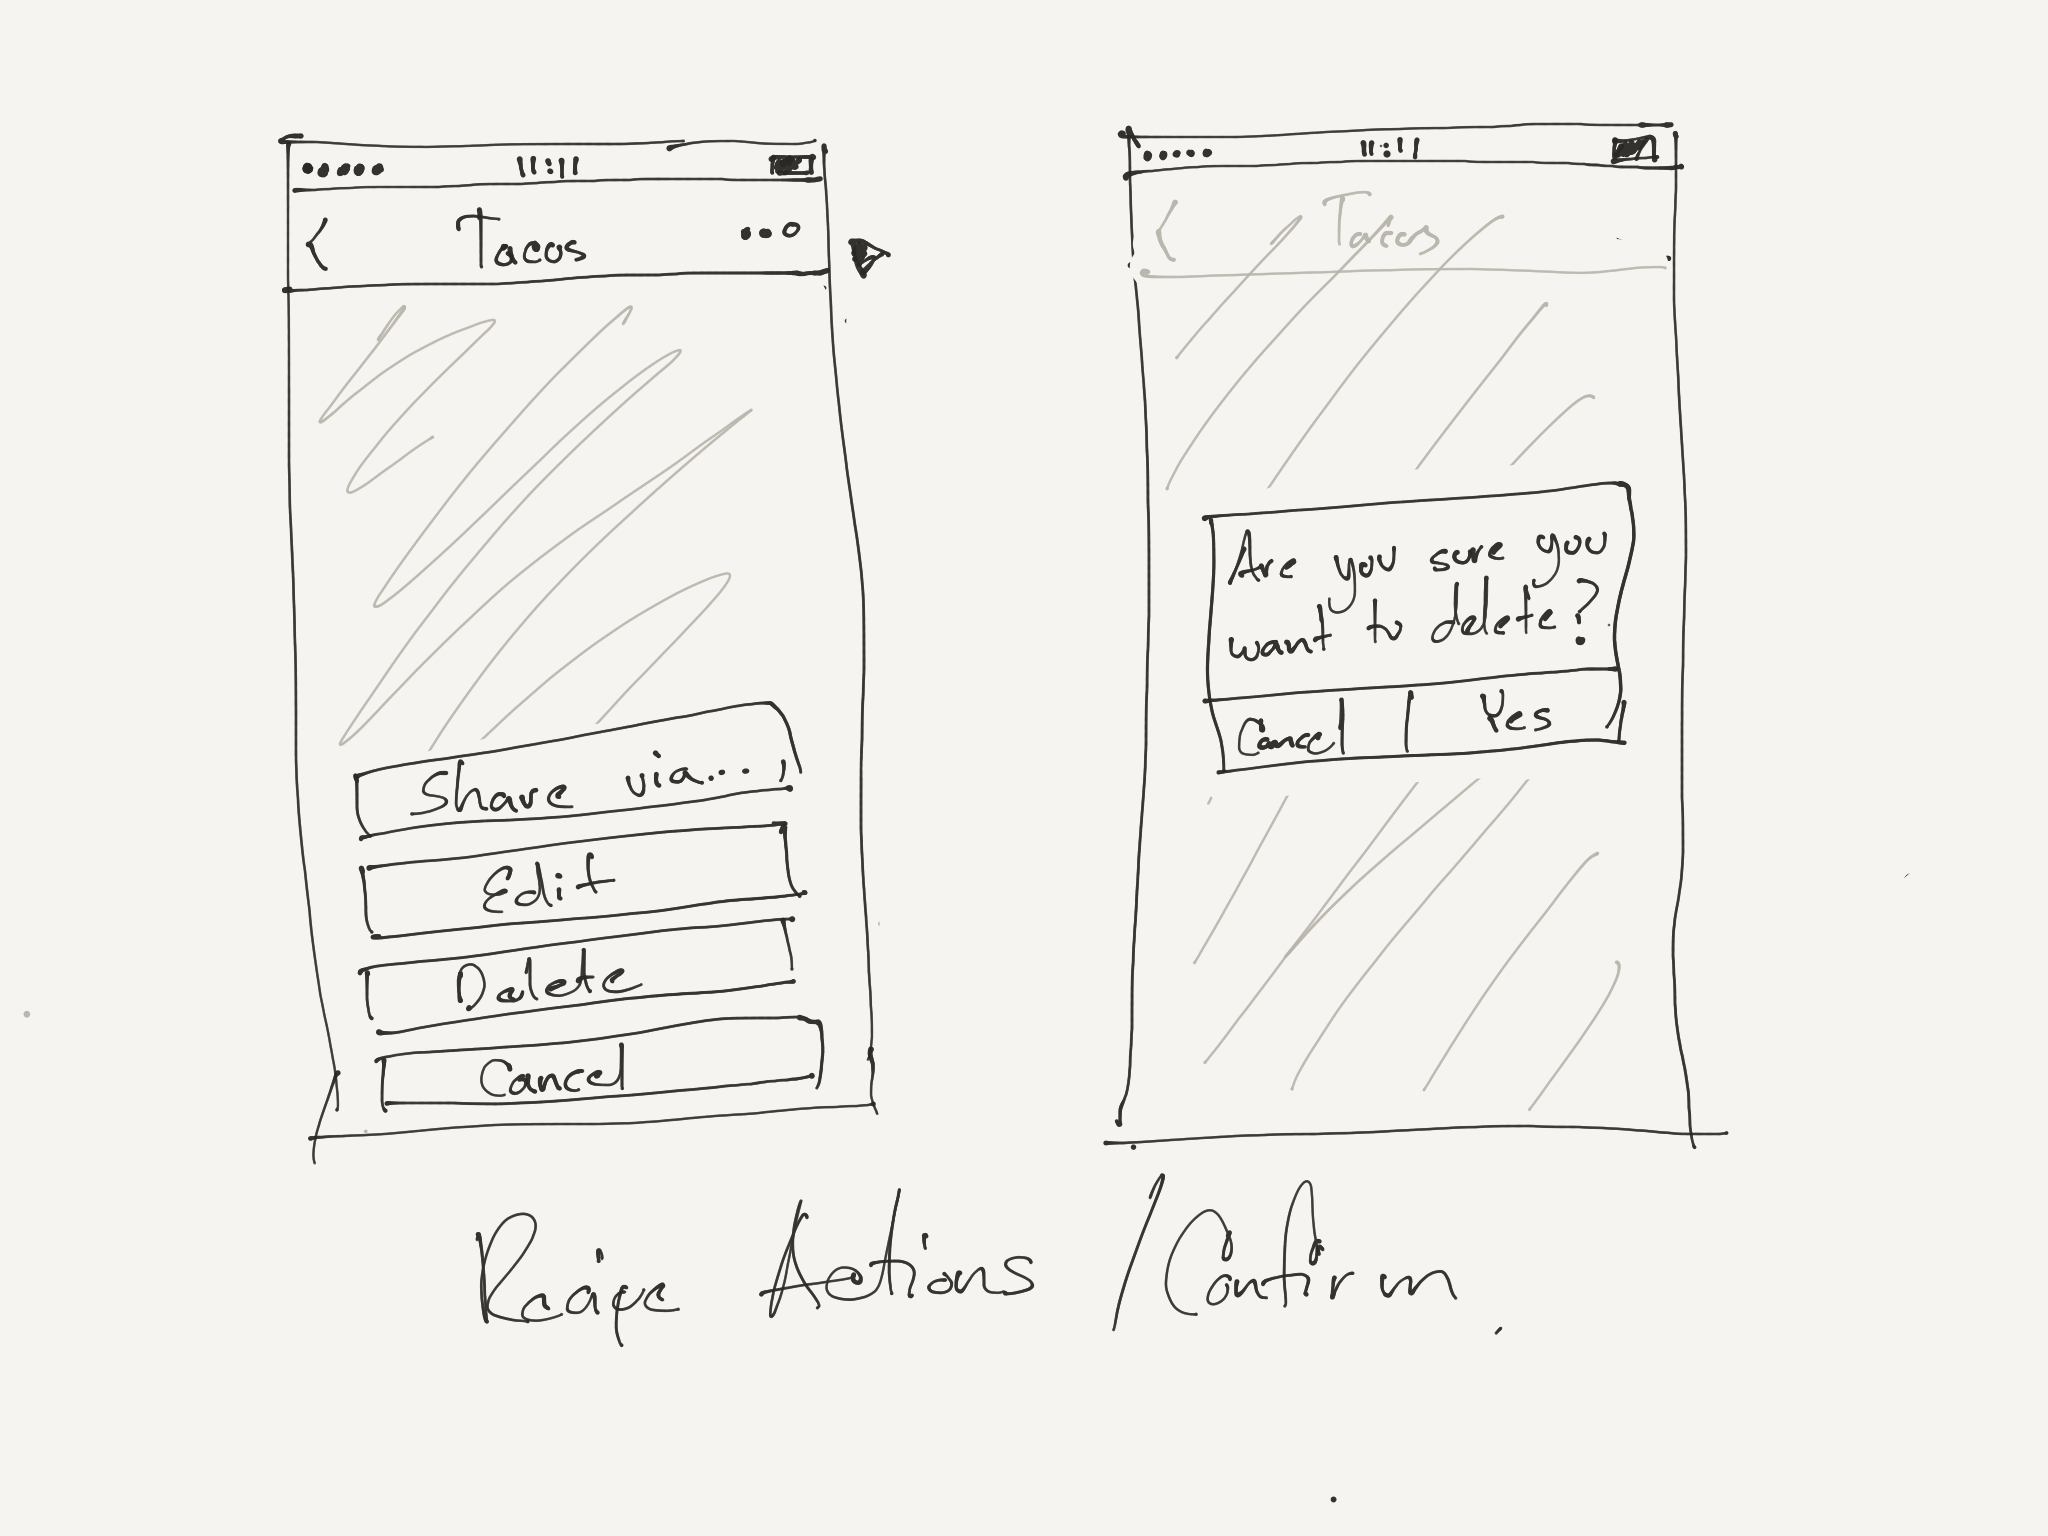 11:11
< Tacos
Share via...
Edit
Delete
Cancel
11:11
< Tacos
Are you sure you
want to delete?
Cancel | Yes
Recipe Actions / Confirm